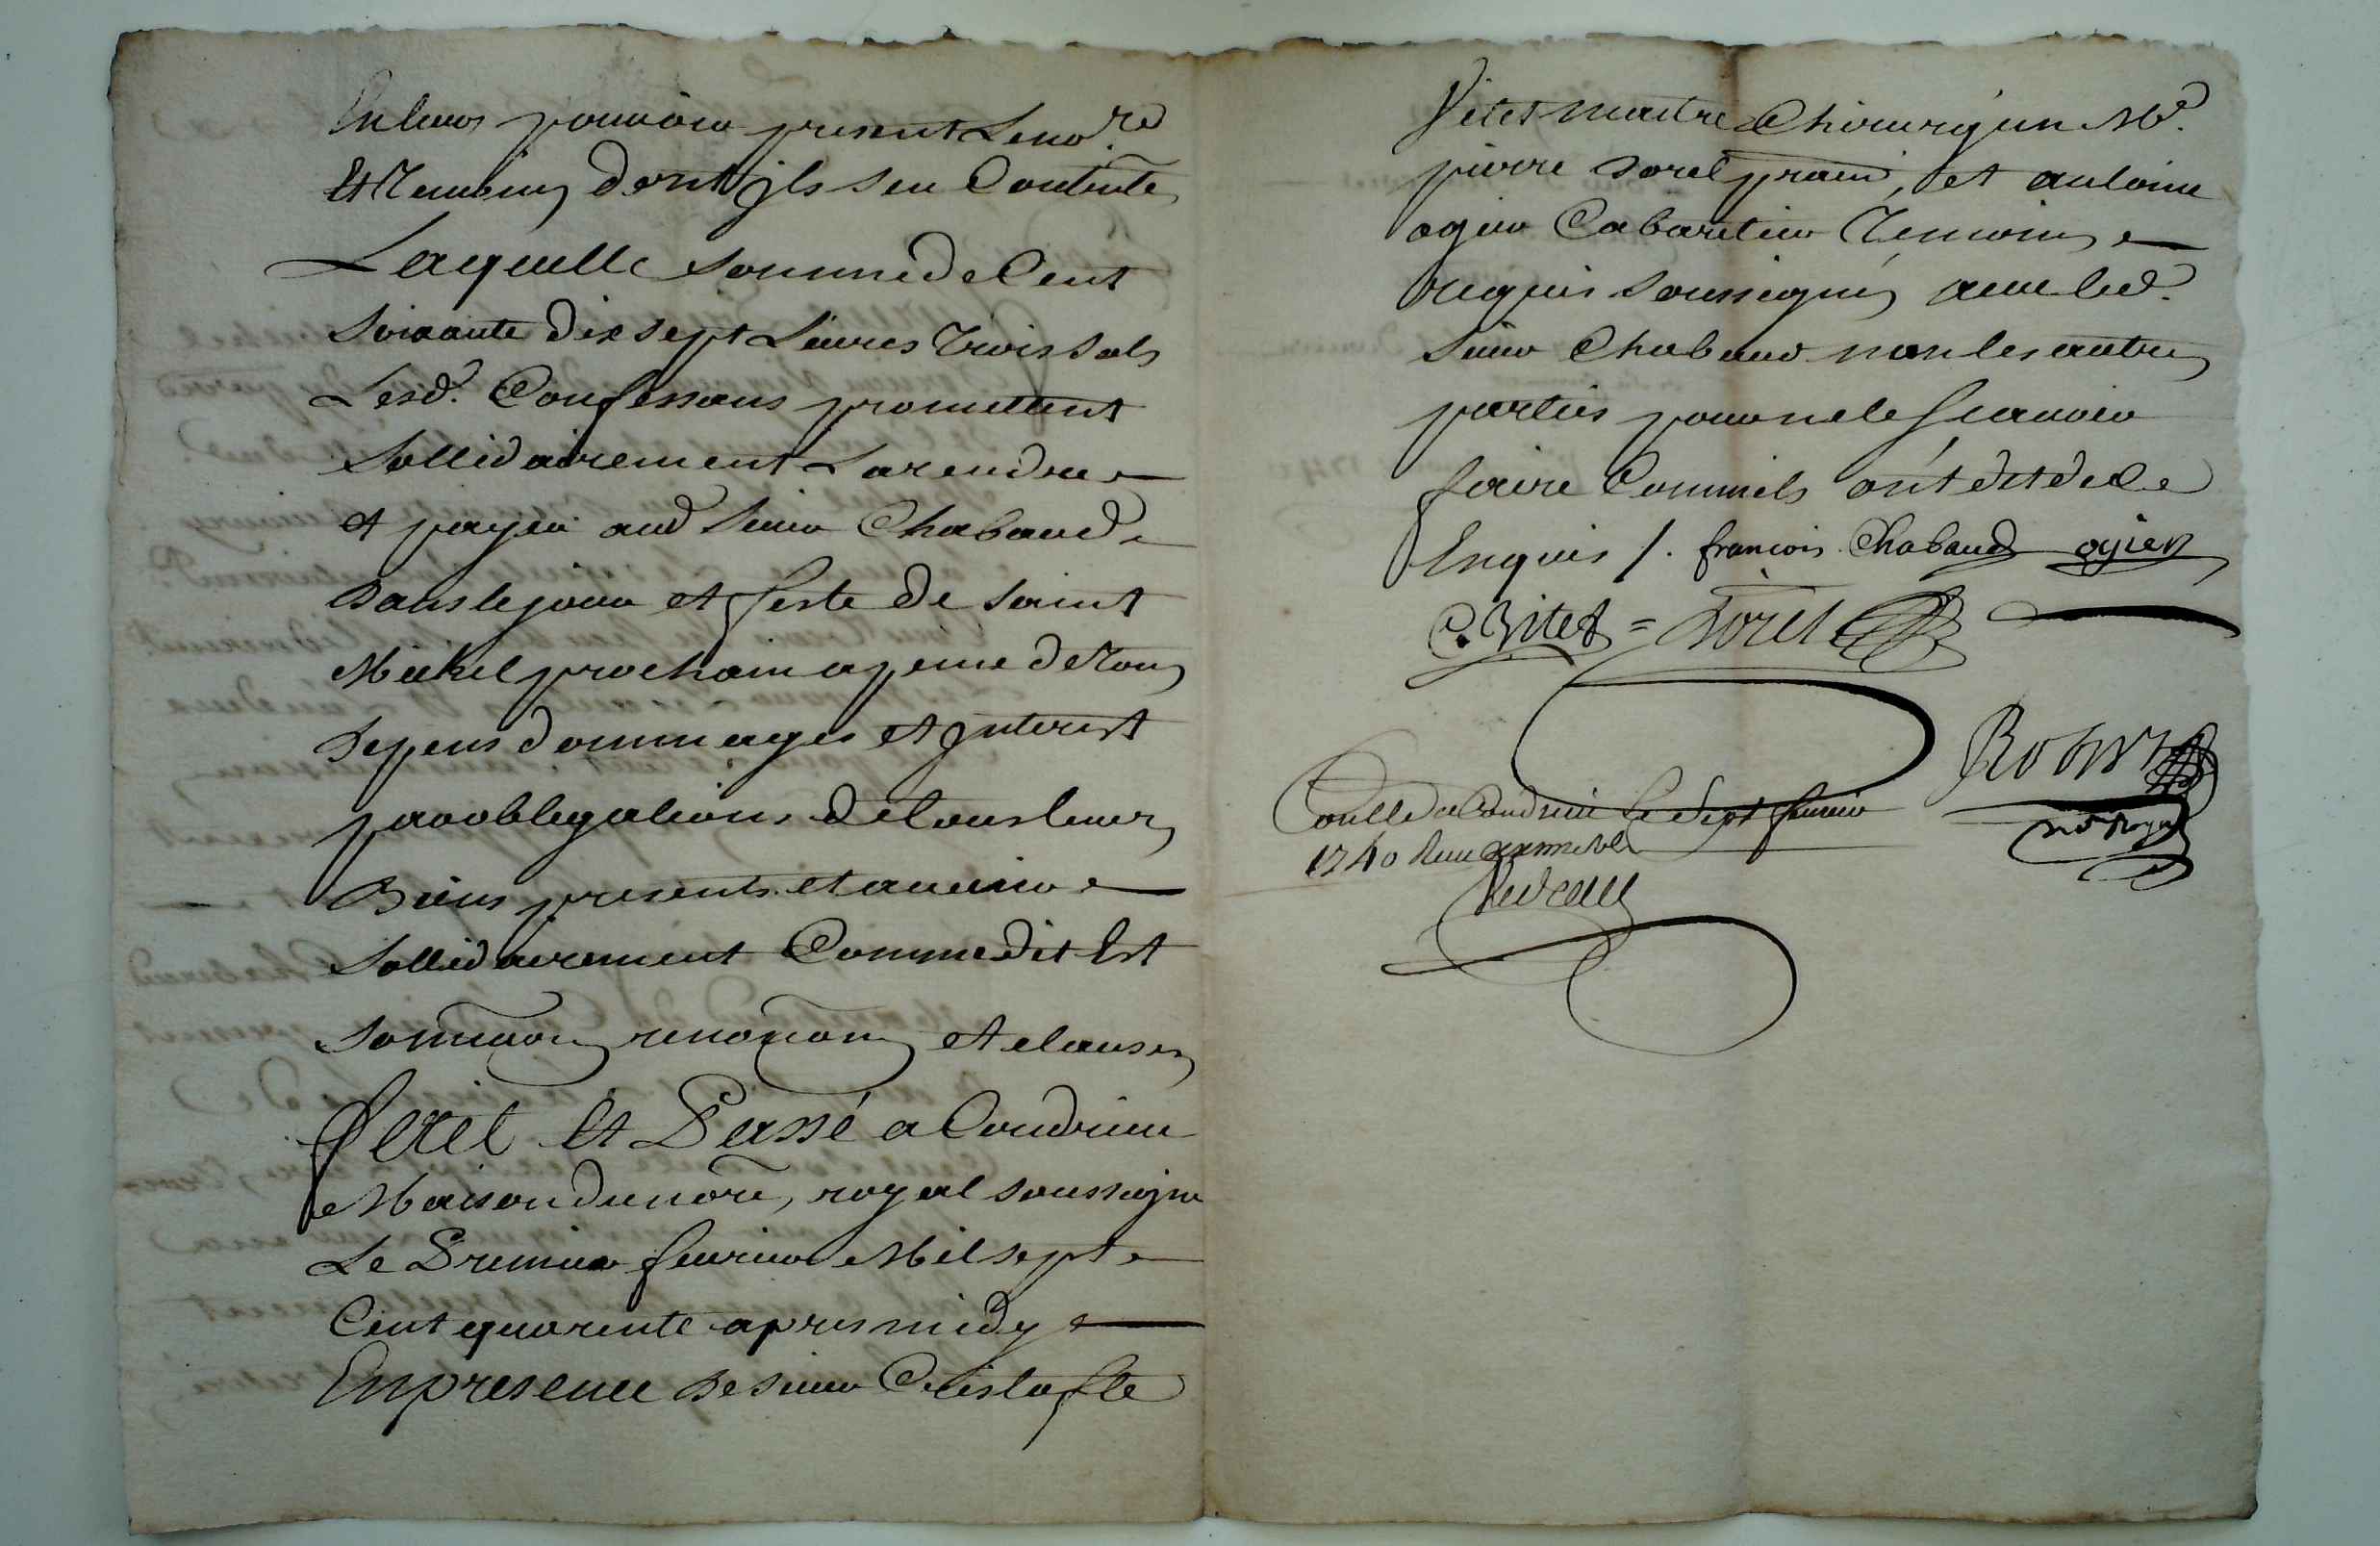 En leurs pouvoir present Le no.re
Et Temoins dont jls sen Contente
Laquelle somme de Cent
Soixante dix sept Livres Trois sols
Lesd. Confessans promettent
Sollidairement La rendre
et payer aud Sieur Chabaud
dans le jour et feste de Saint
Michel prochain a peine de tous
depens dommages et Interest
par obligations de tous leurs
Biens presents et avenir
Sollidairement Comme dit Est
et clauses
fait Et Passé a Condrieu
Maison du no.re royal soussigne
Le Premier feurier Mil sept
Cent quarente apres midy
En presence de sieur Cristofle
Vitet maitre Chirurgien Me.
pierre Sorel et antoine
ogier Cabaretier Temoins
requis soussignés avec led.
Sieur Chabaud non les autres
parties pour ne le scauoir
faire Comme ils ont dit de ce
Enquis /. françois Chabaud ogier
C. Vitet = Sorel
Robert
no.re Royal
Conllé a Condrieu le sept feurier
1740 Reçu